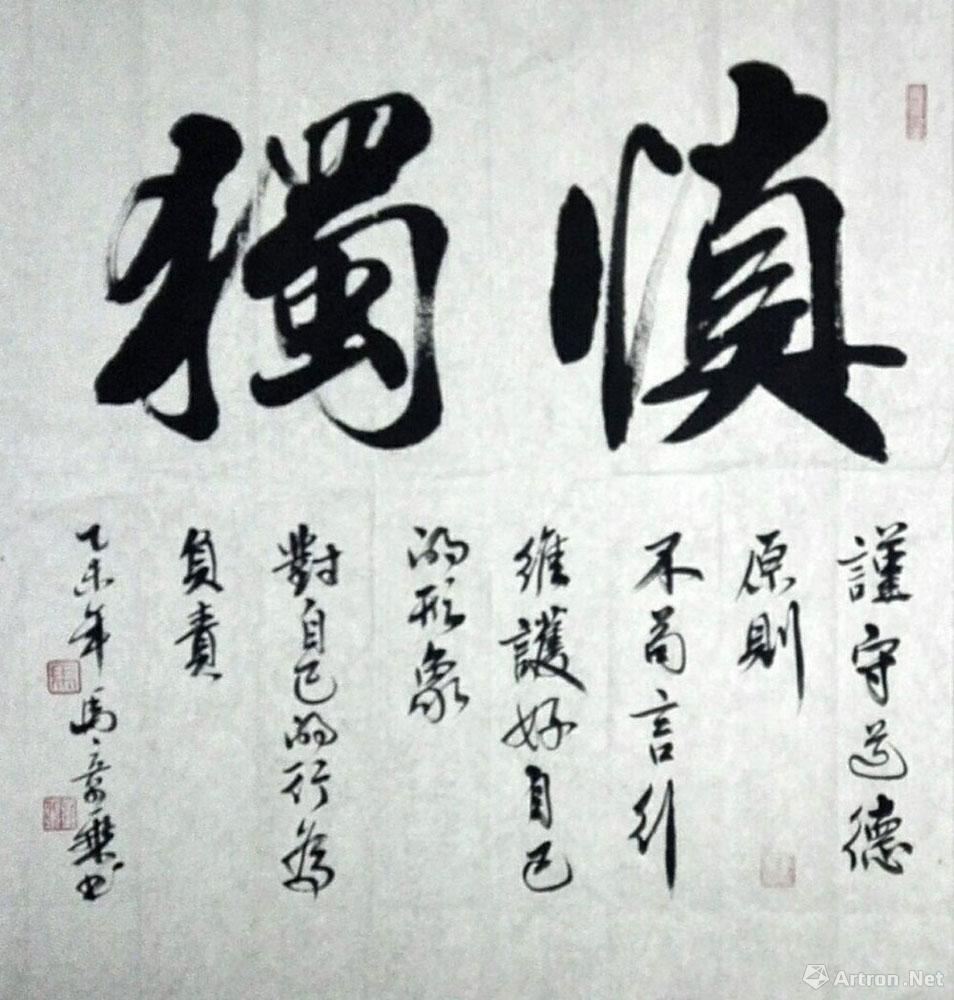 慎獨
謹守道德
原則
不苟言行
維護好自己
的形象
對自己的行為
負責
乙未年
馬
書
Artron.Net